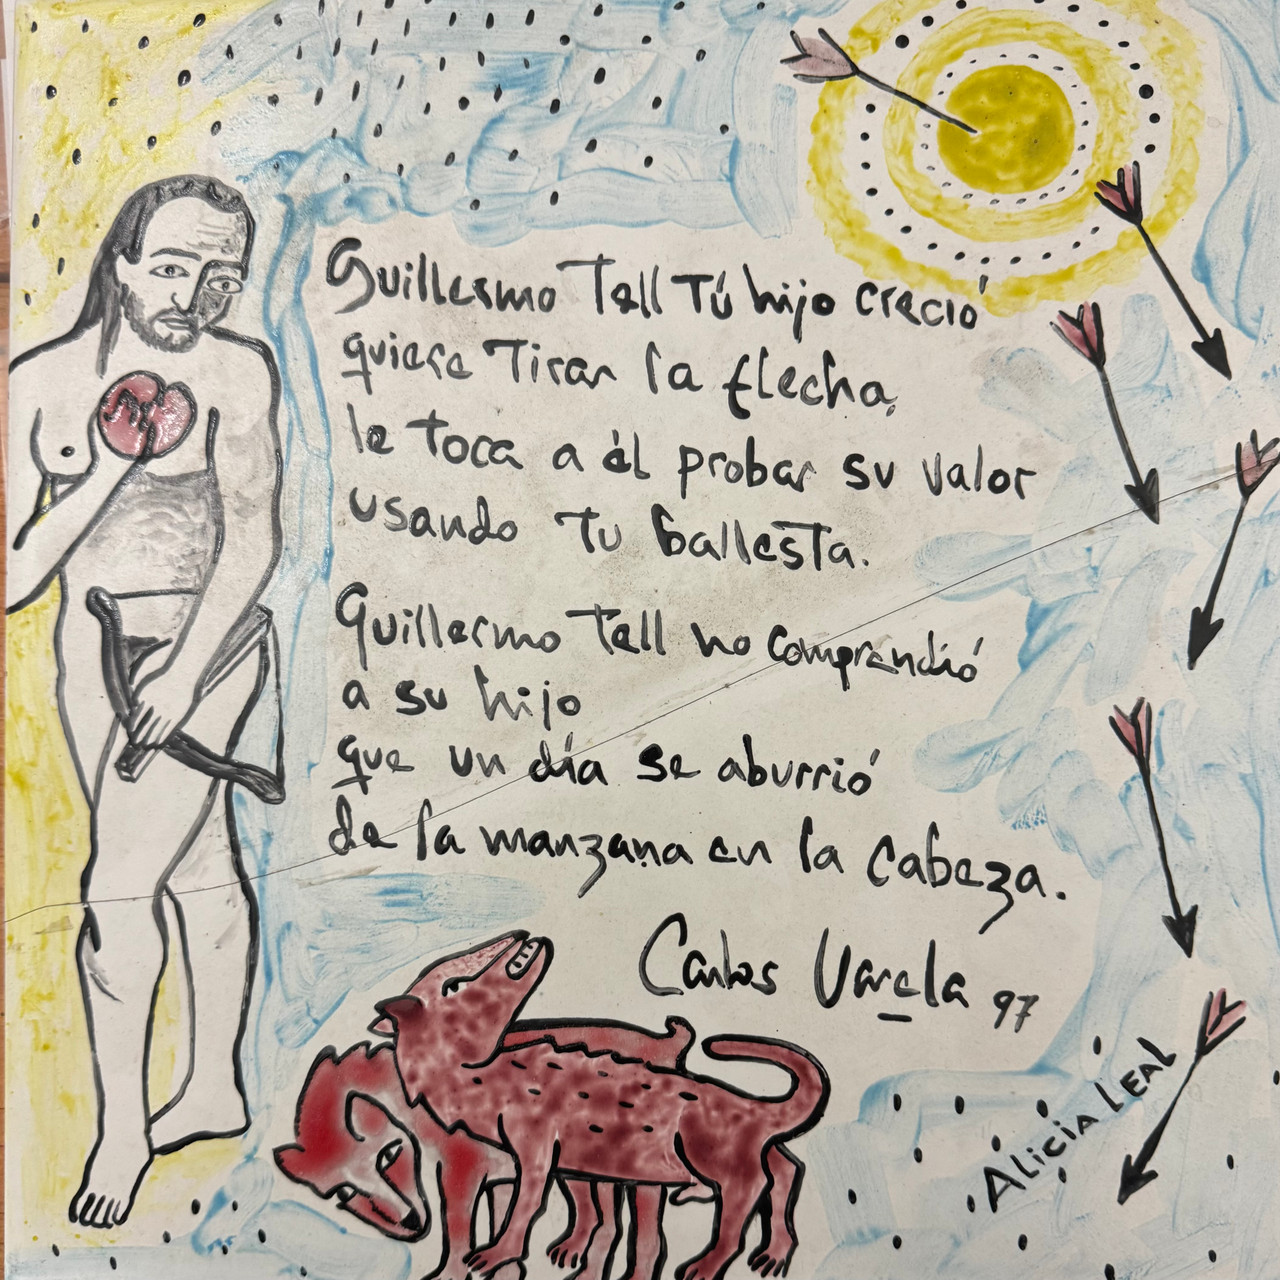 Guillermo Tell Tú hijo creció
quiere Tirar la flecha,
le toca a él probar su valor
usando tu ballesta.
Guillermo Tell no comprendió
a su hijo
que un día se aburrió
de la manzana en la cabeza.
Carlos Varela 97
Alicia Leal